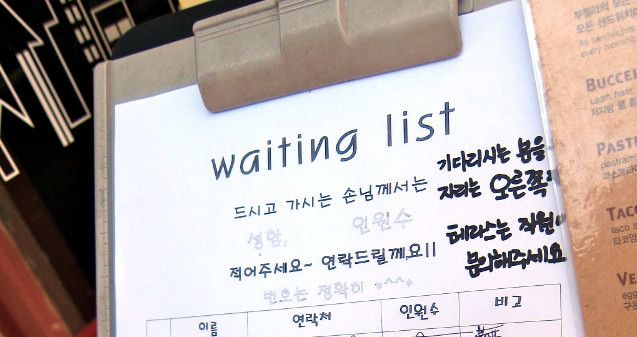 waiting list
드시고 가시는 손님께서는
성함, 인원수
적어주세요~ 연락드릴께요!!
번호는 정확히 *^^*
기다리시는 분들
자리는 오른쪽
테라스는 직원
문의해주세요
이름 연락처 인원수 비고
모든 샌드위치
As sandwiches
every morning
BUCCE
Lean ham
PAST
pastrami
파스트라미
TACO
taco
타코
VE
egg